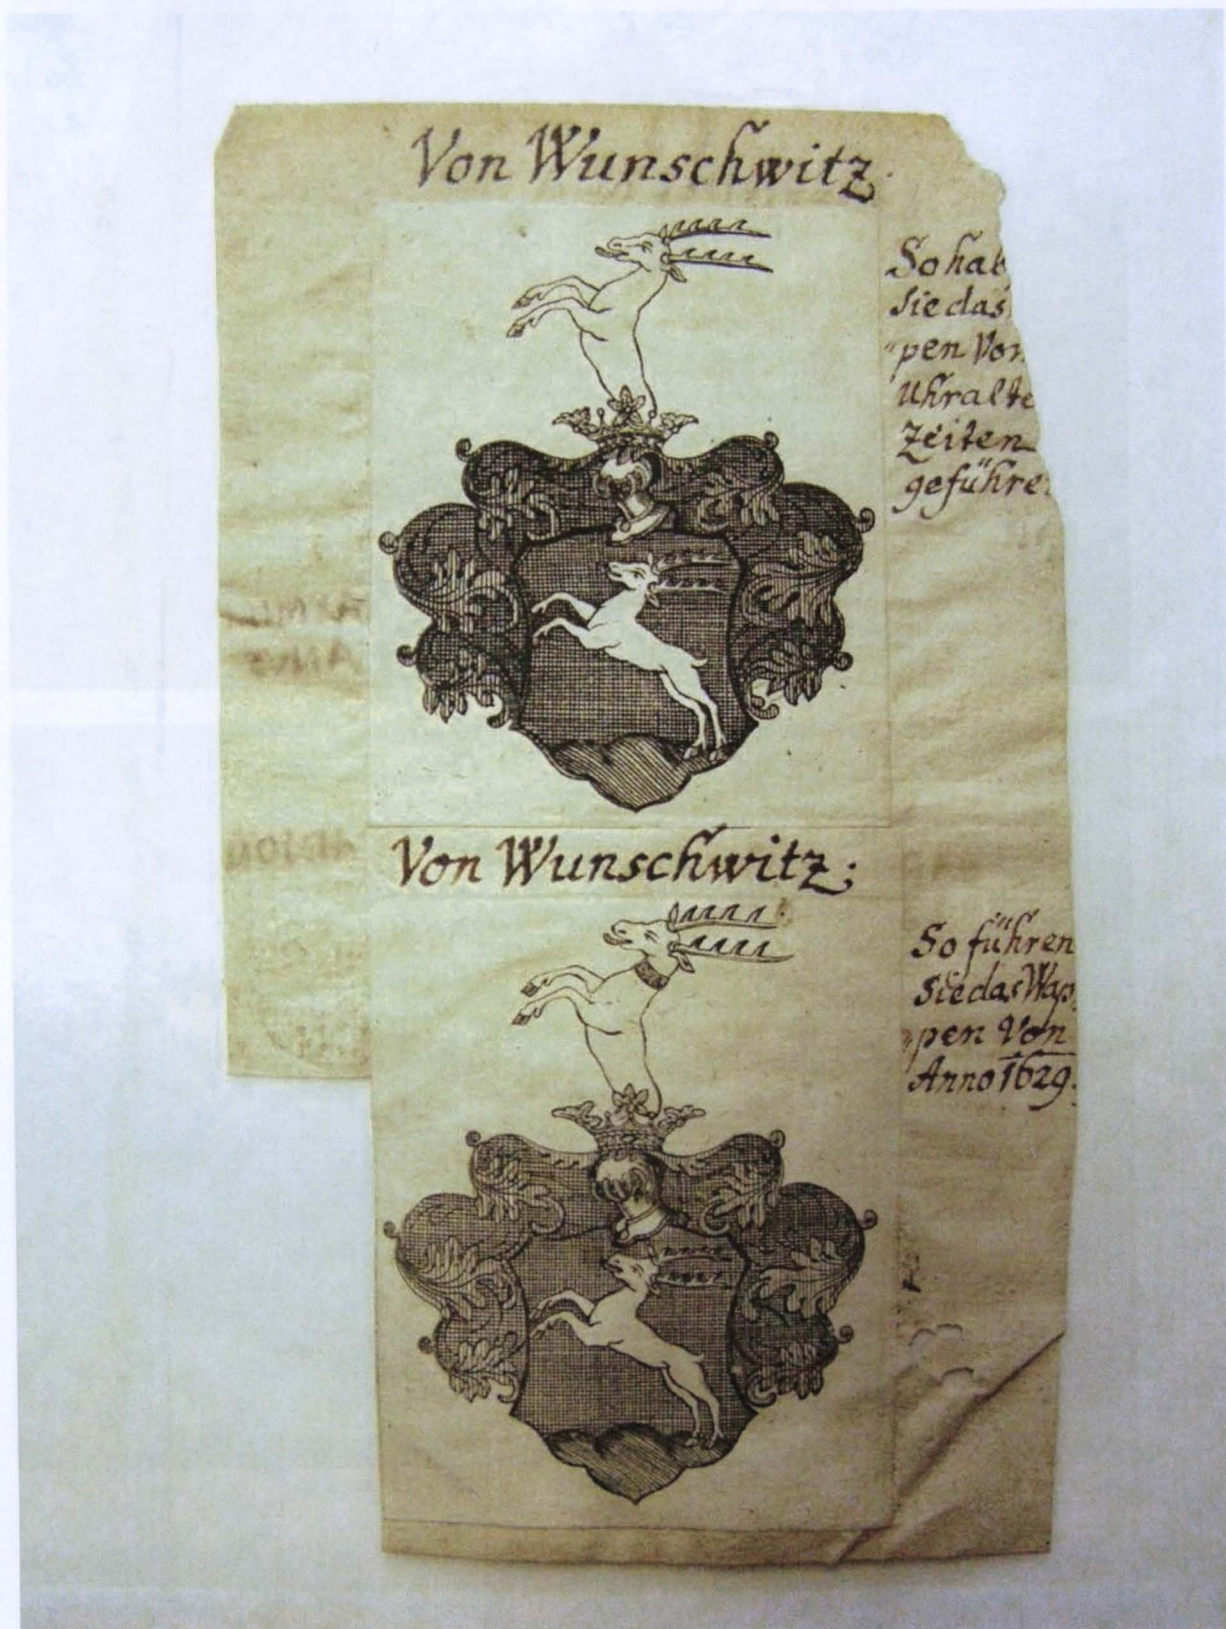 Von Wunschwitz.
So hab
Sie das
"pen Von
Uhralte
Zeiten
geführe
Von Wunschwitz;
So führen
Sie das Wap
"pen Von
Anno 1629.